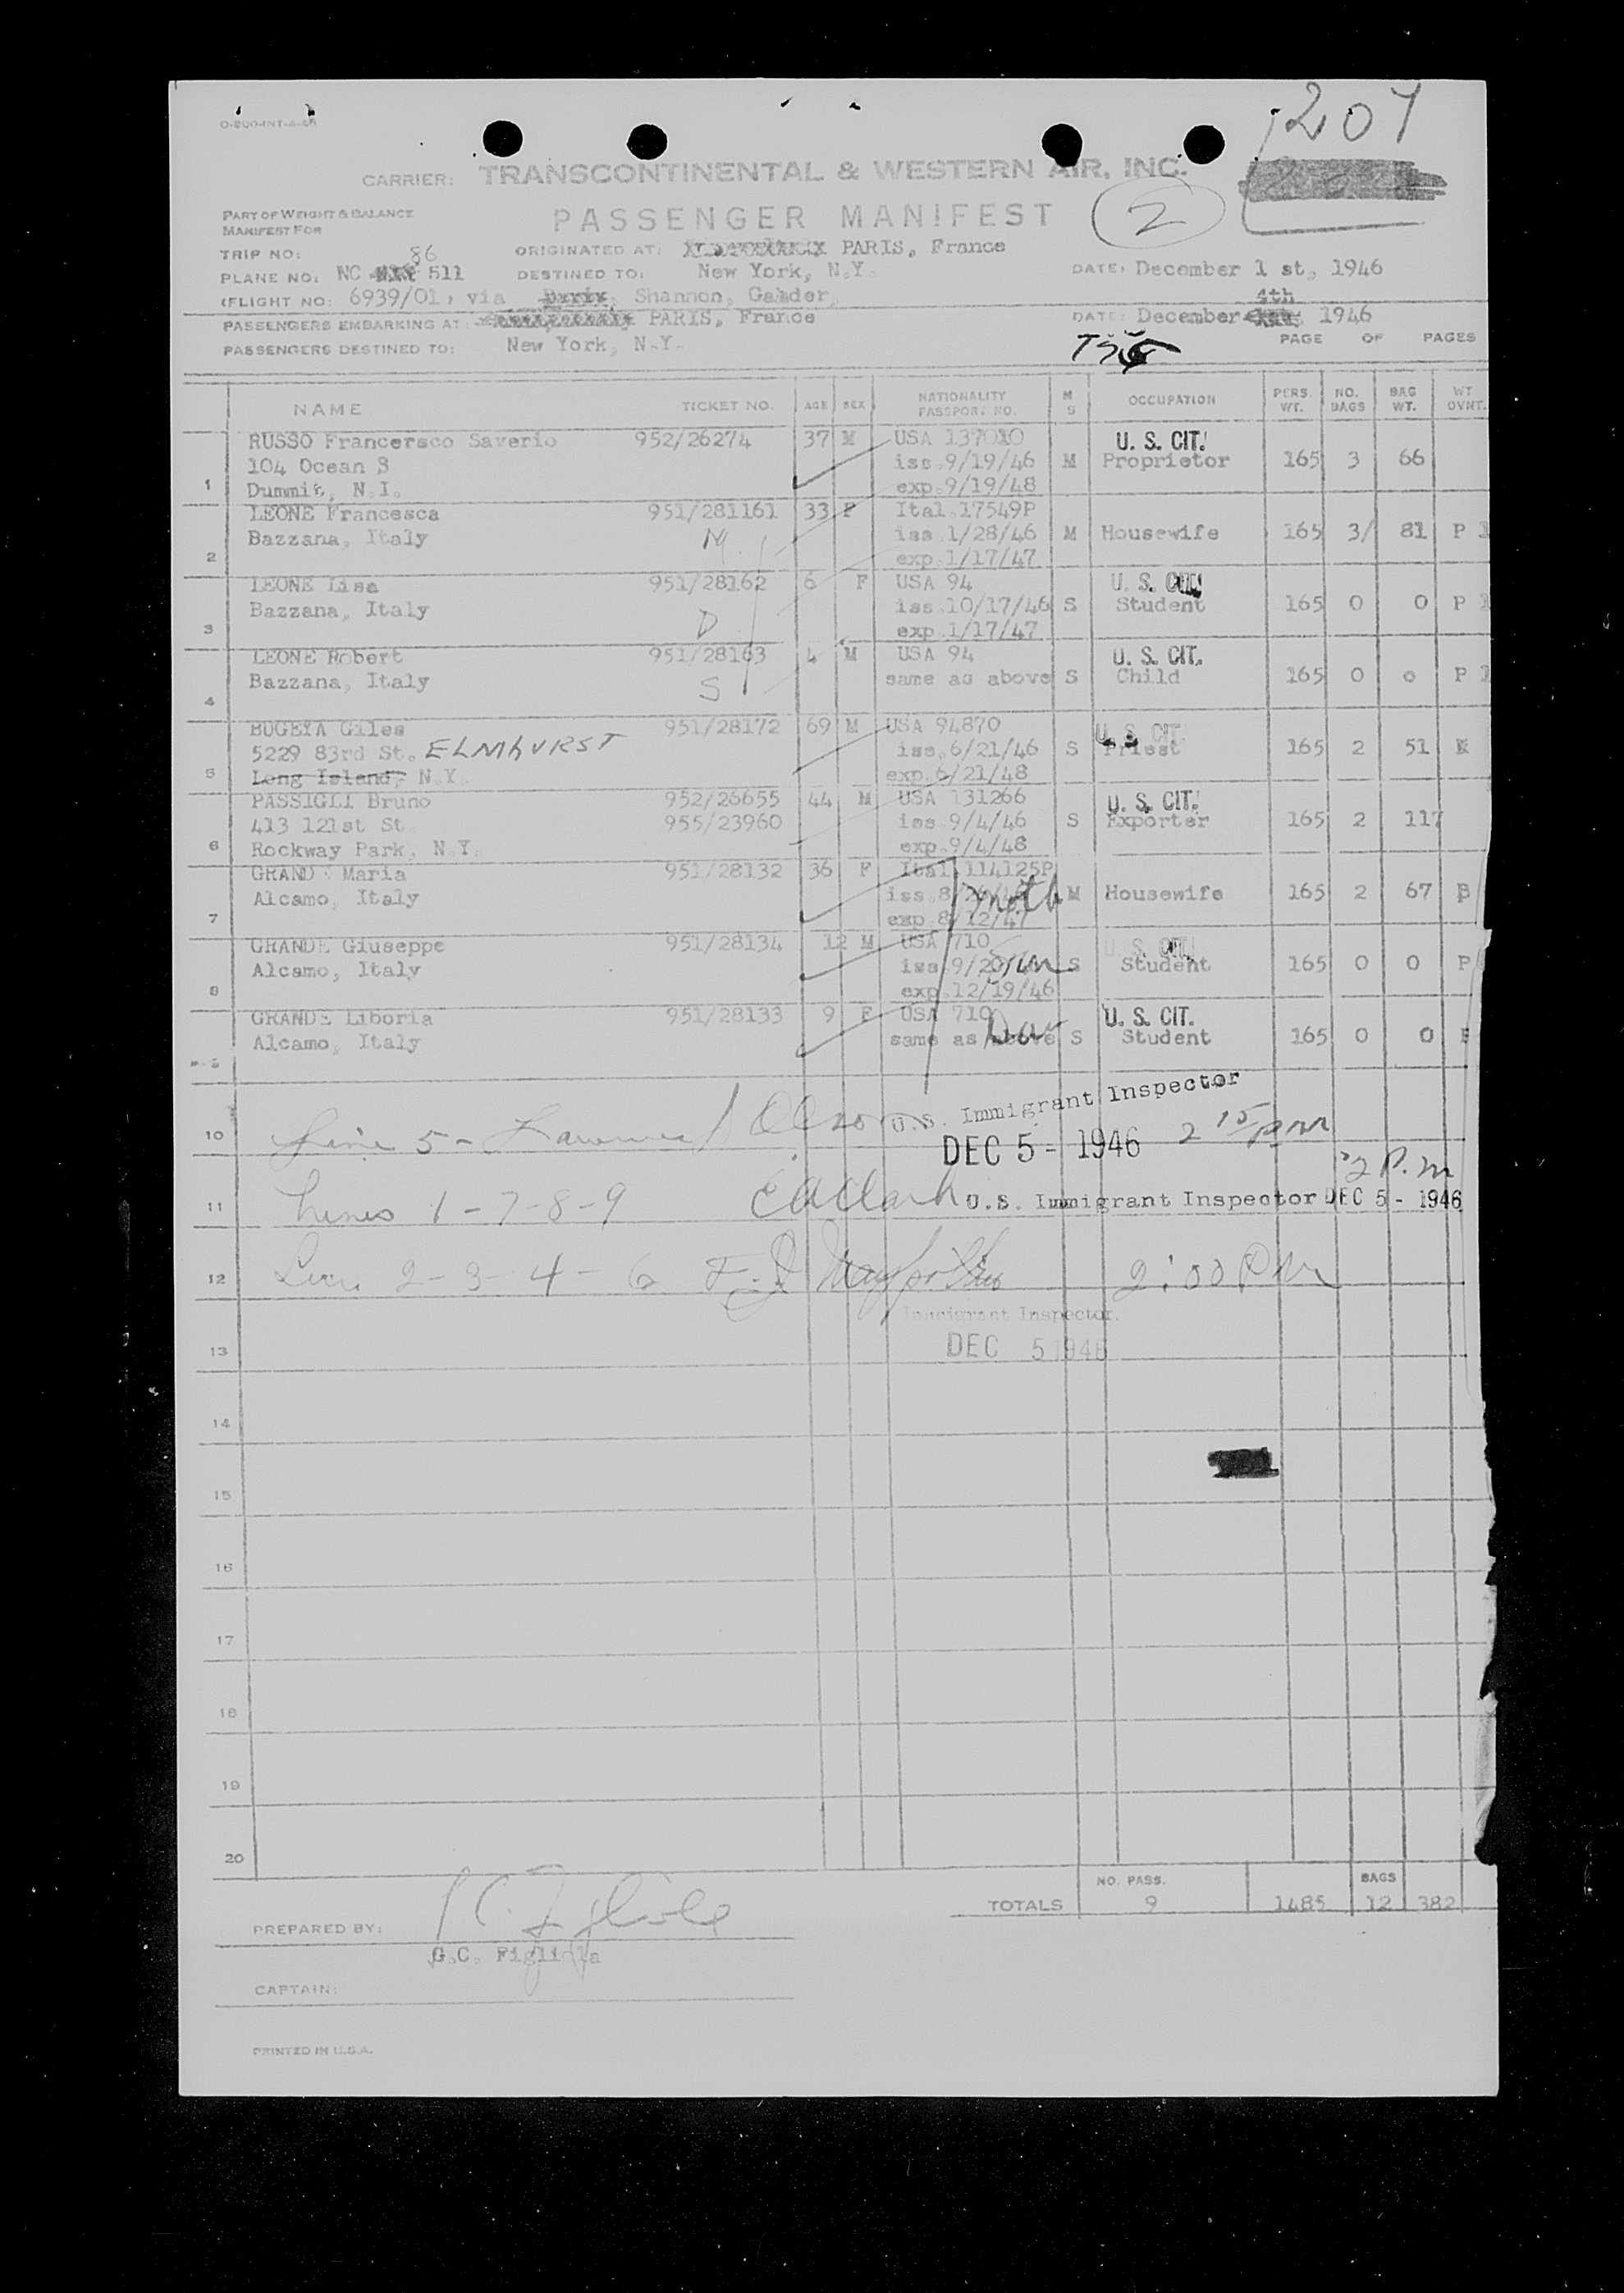 O-200-INT-A-46
1207
CARRIER: TRANSCONTINENTAL & WESTERN AIR, INC.
PART OF WEIGHT & BALANCE
MANIFEST FOR
PASSENGER MANIFEST
2
TRIP NO: 86
ORIGINATED AT: PARIS, France
PLANE NO: NC 511
DESTINED TO: New York, N.Y.
DATE: December 1 st, 1946
(FLIGHT NO: 6939/01, via Paris, Shannon, Gander,
4th
PASSENGERS EMBARKING AT: PARIS, France
DATE: December 1946
PASSENGERS DESTINED TO: New York, N.Y.
PAGE OF PAGES
NAME TICKET NO. AGE SEX NATIONALITY PASSPORT NO. M S OCCUPATION PERS. WT. NO. BAGS BAG WT. WT OVNT.
RUSSO Francersco Saverio 952/26274 37 M USA 137010 U. S. CIT.
104 Ocean B iss.9/19/46 M Proprietor 165 3 66
1 Dummit, N.I. exp.9/19/48
LEONE Francesca 951/281161 33 F Ital.17549P
Bazzana, Italy M iss.1/28/46 M Housewife 165 3/ 81 P 1
2 exp.1/17/47
LEONE Lisa 951/28162 6 F USA 94 U. S. CIT.
Bazzana, Italy D iss.10/17/46 S Student 165 0 0 P 1
3 exp.1/17/47
LEONE Robert 951/28163 4 M USA 94 U. S. CIT.
Bazzana, Italy S same as above S Child 165 0 0 P 1
4
BUGEYA Giles 951/28172 69 M USA 94870 U. S. CIT.
5229 83rd St. ELMhURST iss.6/21/46 S Priest 165 2 51
5 Long Island, N.Y. exp.6/21/48
PASSIGLI Bruno 952/26655 44 M USA 131266 U. S. CIT.
413 121st St. 955/23960 iss.9/4/46 S Exporter 165 2 117
6 Rockway Park, N.Y. exp.9/4/48
GRAND Maria 951/28132 36 F Ital.114125P
Alcamo, Italy iss.8/ moth M Housewife 165 2 67
7 exp.8/12/47
GRANDE Giuseppe 951/28134 12 M USA 710 U. S. CIT.
Alcamo, Italy iss.9/20/ son S Student 165 0 0 P
8 exp.12/19/46
GRANDE Liboria 951/28133 9 F USA 710 U. S. CIT.
Alcamo, Italy same as above Dau S Student 165 0 0
9
10 Line 5 - Olson U.S. Immigrant Inspector
DEC 5 - 1946 2 15 pm
2 P.m
11 Lines 1 - 7 - 8 - 9 U.S. Immigrant Inspector DEC 5 - 1946
12 Lines 2 - 3 - 4 - 6 2:00 PM
Immigrant Inspector.
13 DEC 5 1946
14
15
16
17
18
19
20
NO. PASS. BAGS
TOTALS 9 1485 12 382
PREPARED BY:
G.C. Figliola
CAPTAIN:
PRINTED IN U.S.A.